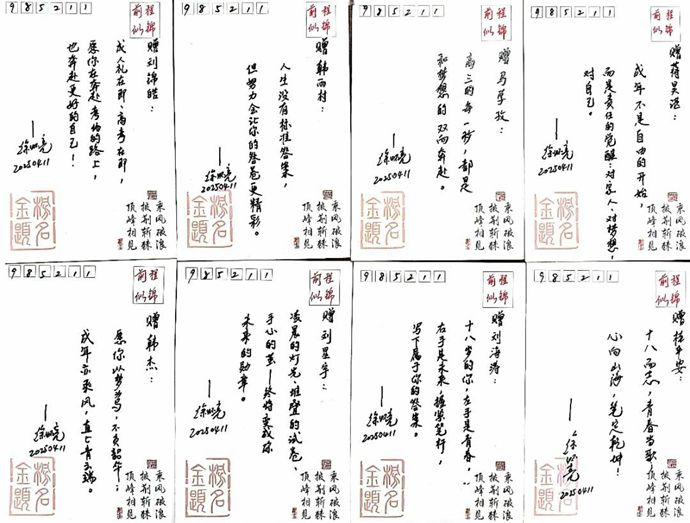 985211
前程
似锦
赠刘锦皓：
成人礼在即、高考在即，
愿你在奔赴考场的路上，
也奔赴更好的自己！
20250411
乘风破浪
披荆斩棘
顶峰相见
金榜
題名
985211
前程
似锦
赠韩雨村：
人生没有标准答案，
但努力会让你的答卷更精彩。
20250411
乘风破浪
披荆斩棘
顶峰相见
金榜
題名
985211
前程
似锦
高三的每一秒，都是
和梦想的双向奔赴。
20250411
乘风破浪
披荆斩棘
顶峰相见
金榜
題名
985211
前程
似锦
赠蒋昊滔：
成年不是自由的开始，
而是责任的觉醒：对家人、对梦想，
对自己。
20250411
乘风破浪
披荆斩棘
顶峰相见
金榜
題名
985211
前程
似锦
赠韩杰：
愿你以梦为马，不负韶华；
成年亦乘风，直上青云端。
20250411
乘风破浪
披荆斩棘
顶峰相见
金榜
題名
985211
前程
似锦
赠刘星宇：
凌晨的灯光、堆叠的试卷、
手心的茧—终将变成你
未来的勋章。
20250411
乘风破浪
披荆斩棘
顶峰相见
金榜
題名
985211
前程
似锦
赠刘海涛：
十八岁的你，左手是青春，
右手是未来，握紧笔杆，
写下属于你的答案。
20250411
乘风破浪
披荆斩棘
顶峰相见
金榜
題名
985211
前程
似锦
赠程平安：
十八而志，青春当歌，
心向山海，笔定乾坤！
20250411
乘风破浪
披荆斩棘
顶峰相见
金榜
題名